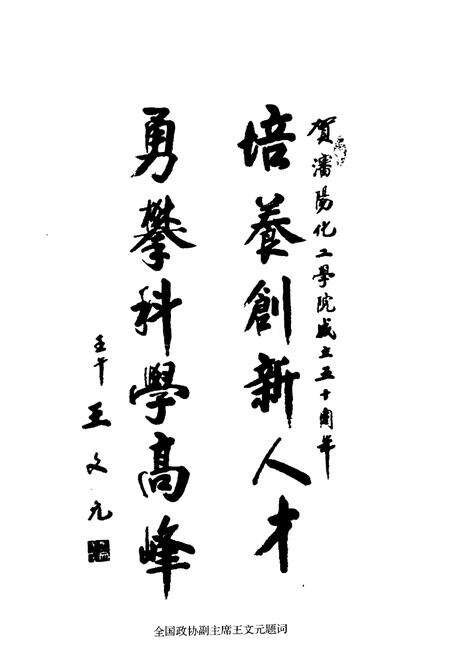 賀瀋陽化工學院成立五十周年
培養創新人才
勇攀科學高峰
壬午 王文元
全国政协副主席王文元题词